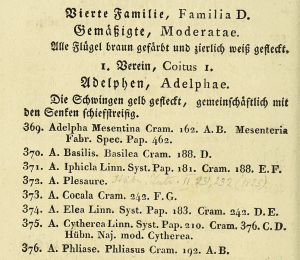 Vierte Familie, Familia D.
Gemäßigte, Moderatae.
Alle Flügel braun gefärbt und zierlich weiß gefleckt.
1. Verein, Coitus 1.
Adelphen, Adelphae.
Die Schwingen gelb gefleckt, gemeinschäftlich mit
den Senken schiefstreifig.
369. Adelpha Mesentina Cram. 162. A. B. Mesenteria
Fabr. Spec. Pap. 462.
370. A. Basilis. Basilea Cram. 188. D.
371. A. Iphicla Linn. Syst. Pap. 181. Cram. 188. E. F.
372. A. Plesaure.
373. A. Cocala Cram. 242. F. G.
374. A. Elea Linn. Syst. Pap. 183. Cram. 242. D. E.
375. A. Cytherea Linn. Syst. Pap. 210. Cram. 376. C. D.
Hübn. Naj. mod. Cytherea.
376. A. Phliase. Phliasus Cram. 192. A. B.